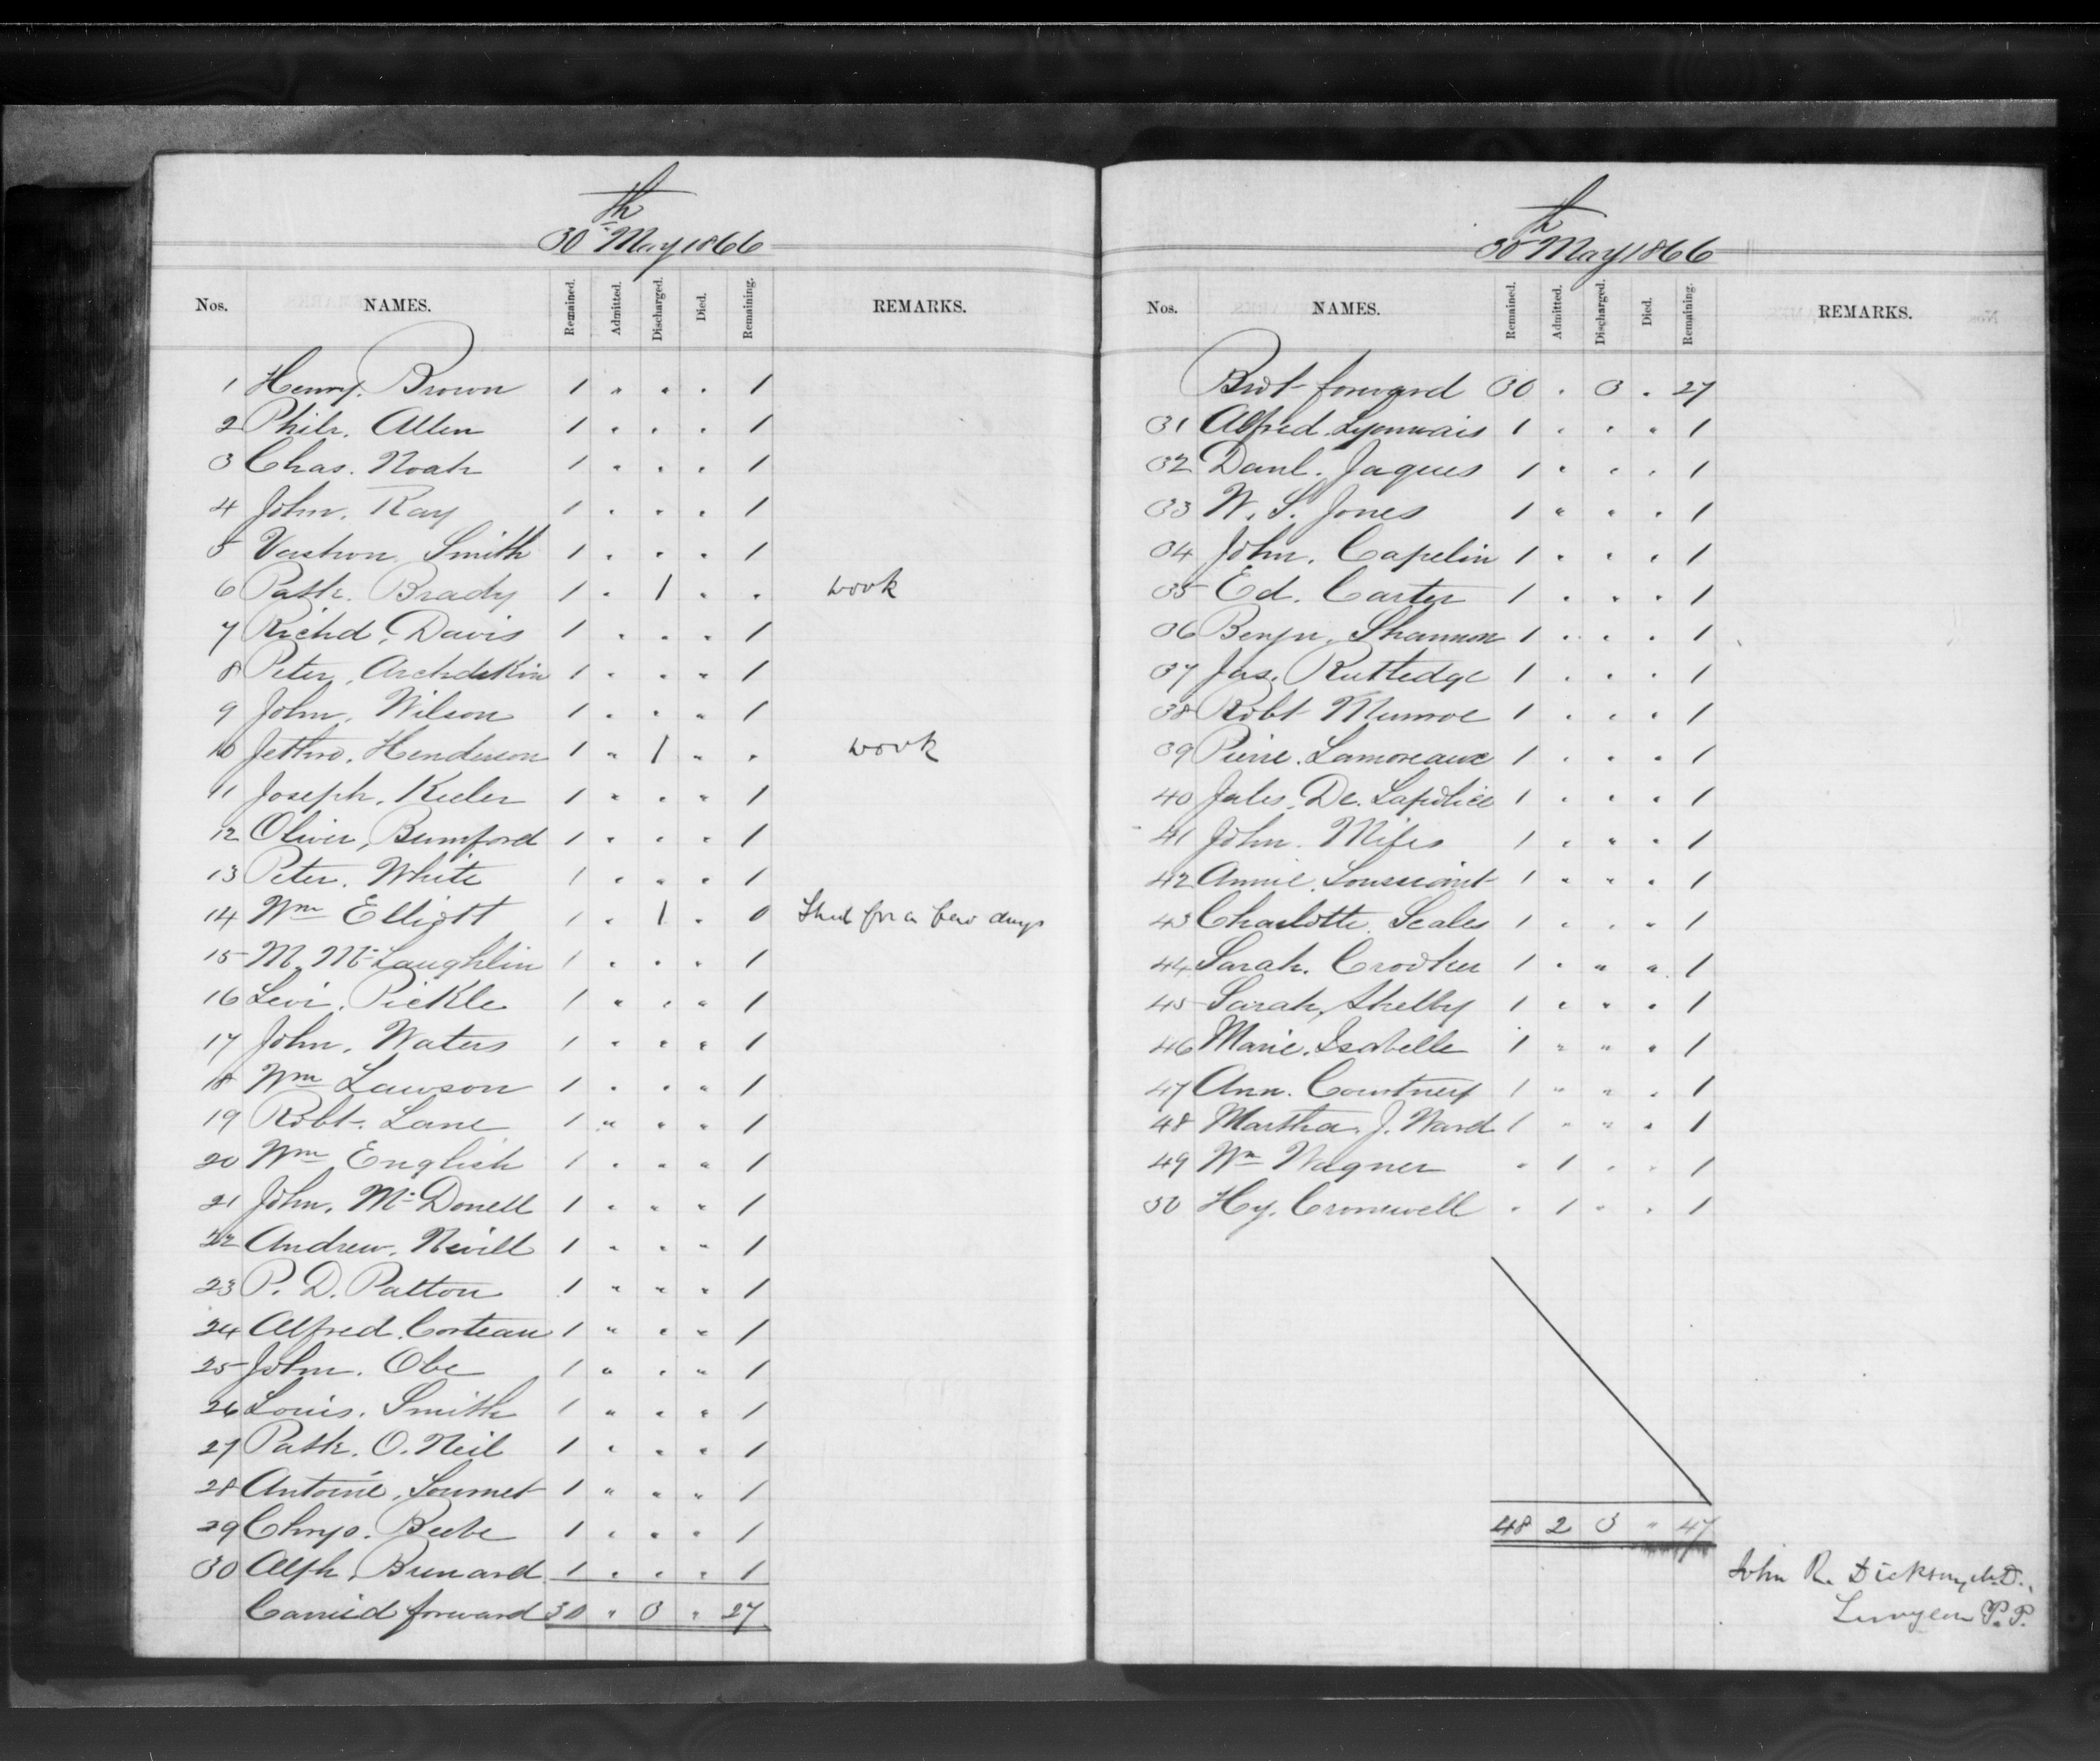 30th May 1866
Nos. NAMES. Remained. Admitted. Discharged. Died. Remaining. REMARKS.
1 Henry. Brown 1 " " " 1
2 Philr. Allen 1 " " " 1
3 Chas. Noah 1 " " " 1
4 John. Ray 1 " " " 1
5 Vashon Smith 1 " " " 1
6 Patk. Brady 1 " 1 " " work
7 Richd. Davis 1 " " " 1
8 Peter. Archdekin 1 " " " 1
9 John. Wilson 1 " " " 1
10 Jethro. Henderson 1 " 1 " " work
11 Joseph. Keeler 1 " " " 1
12 Oliver, Bumford 1 " " " 1
13 Peter. White 1 " " " 1
14 Wm Elliott 1 " 1 " 0 Shed for a few days
15 M. McLaughlin 1 " " " 1
16 Levi. Pickle 1 " " " 1
17 John. Waters 1 " " " 1
18 Wm Lawson 1 " " " 1
19 Robt. Lane 1 " " " 1
20 Wm English 1 " " " 1
21 John. McDonell 1 " " " 1
22 Andrew. Nevill 1 " " " 1
23 P. D. Patton 1 " " " 1
24 Alfred. Corteau 1 " " " 1
25 John. Obe 1 " " " 1
26 Louis. Smith 1 " " " 1
27 Patk. O. Neil 1 " " " 1
28 Antoine. Lournet 1 " " " 1
29 Chryo. Beebe 1 " " " 1
30 Alph. Bunard 1 " " " 1
Carried forward 30 " 3 " 27
30th May 1866
Nos. NAMES. Remained. Admitted. Discharged. Died. Remaining. REMARKS.
Brot forward 30 " 3 " 27
31 Alfred. Lyonnais 1 " " " 1
32 Danl. Jaques 1 " " " 1
33 W. S. Jones 1 " " " 1
34 John. Capelin 1 " " " 1
35 Ed. Carter 1 " " " 1
36 Benjn. Shannon 1 " " " 1
37 Jas. Rutledge 1 " " " 1
38 Robt Munroe 1 " " " 1
39 Pierre. Lamoreaux 1 " " " 1
40 Jules. De. Lapolice 1 " " " 1
41 John. Miles 1 " " " 1
42 Annie. 1 " " " 1
43 Charlotte. Scales 1 " " " 1
44 Sarah. Crooker 1 " " " 1
45 Sarah, Shelby 1 " " " 1
46 Marie. Isabelle 1 " " " 1
47 Ann. Courtney 1 " " " 1
48 Martha. J. Ward 1 " " " 1
49 Wm Wagner " 1 " " 1
50 Hy. Cromwell " 1 " " 1
48 2 3 " 47
John R. Dickson, M.D.
Surgeon P.P.